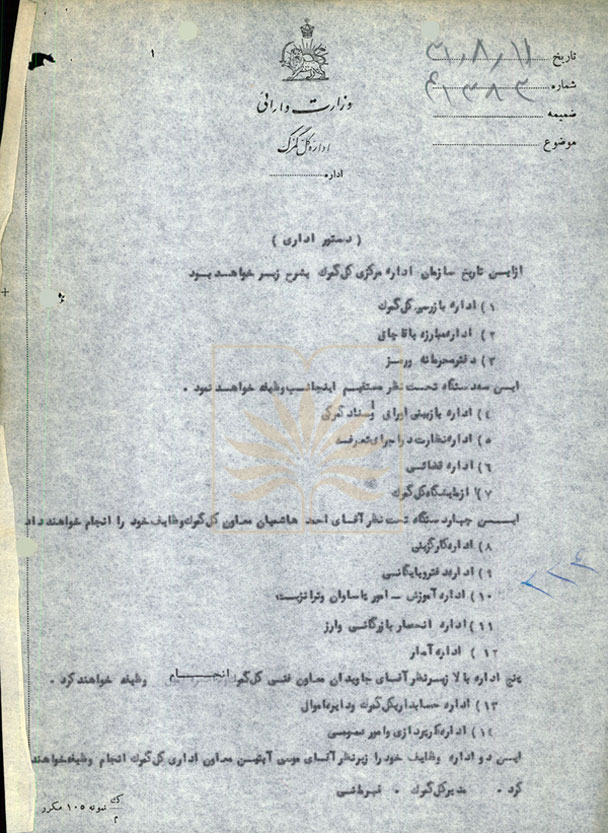 ۱
تاریخ ۳۱٫۸٫۱۱
شماره ۴۱۳۸۳
ضمیمه
موضوع
وزارت دارائی
اداره کل گمرک
اداره
( دستور اداری )
ازاین تاریخ سازمان اداره مرکزی کل گمرک بشرح زیر خواهد بود
۱ ) اداره بازرسی کل گمرک
۲ ) اداره مبارزه با قاچاق
۳ ) دفتر محرمانه ورمز
این سه دستگاه تحت نظر مستقیم اینجانب وظیفه خواهند نمود .
۴ ) اداره بازبینی اوراق و اسناد گمرکی
۵ ) اداره نظارت در اجرای تعرفه
۶ ) اداره قضائی
۷ ) آزمایشگاه کل گمرک
این چهار دستگاه تحت نظر آقای احمد هاشمیان معاون کل گمرک وظایف خود را انجام خواهند داد
۸ ) اداره کارگزینی
۹ ) اداره دفتر و بایگانی
۱۰ ) اداره آموزش – امور پاساوان وترانزیت
۱۱ ) اداره انحصار بازرگانی وارز
۱۲ ) اداره آمار
پنج اداره بالا زیر نظر آقای جاویدان معاون فنی کل گمرک انجام وظیفه خواهند کرد .
۱۳ ) اداره حسابداری کل گمرک ودایره اموال
۱۴ ) اداره کارپردازی وامور عمومی
این دو اداره وظایف خود را زیر نظر آقای موسی آبتین معاون اداری کل گمرک انجام وظیفه خواهند
کرد . مدیر کل گمرک .
ک/م نمونه ۱۰۵ مکرر